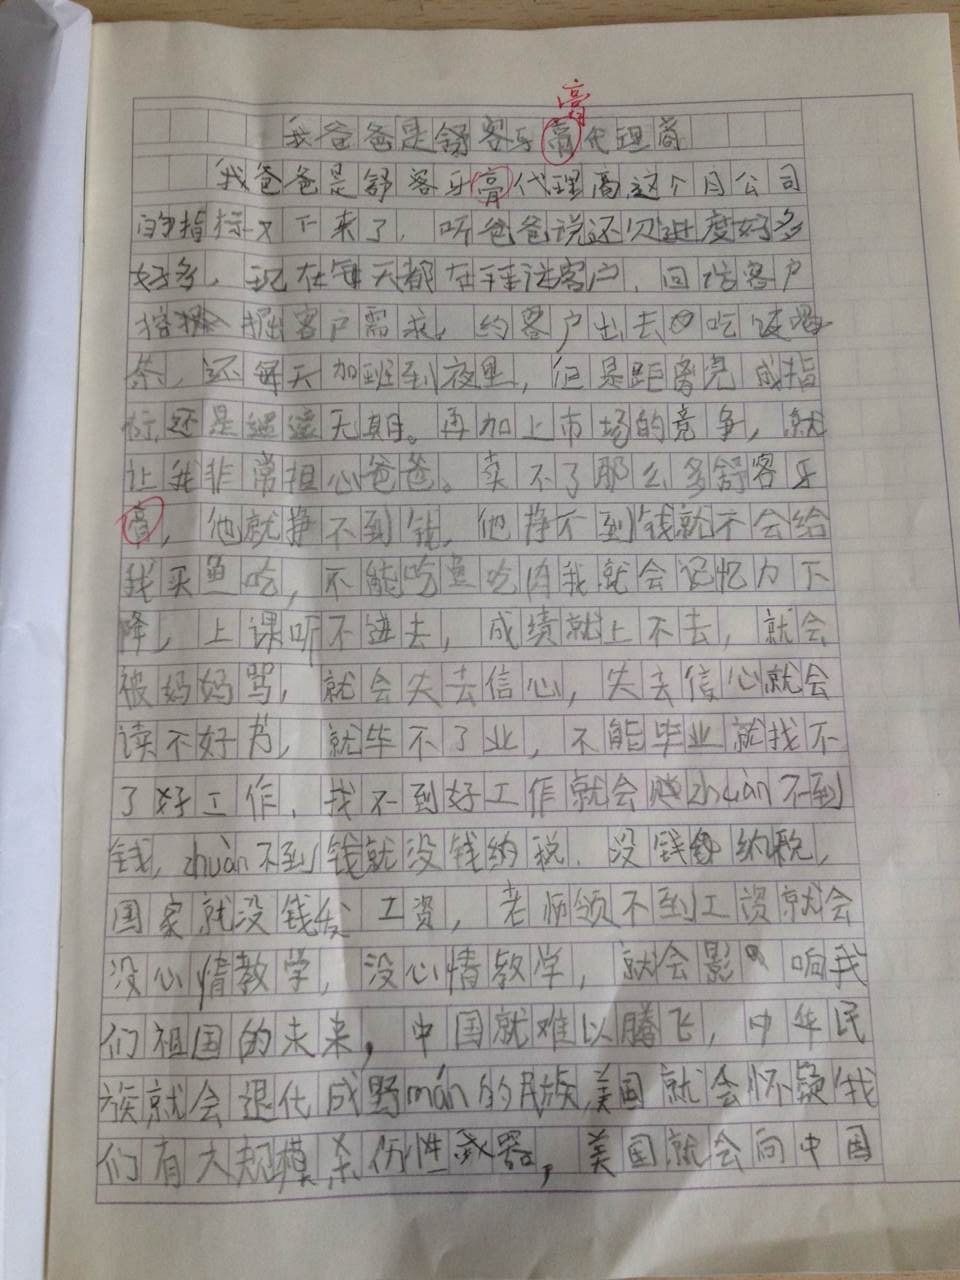 膏
我爸爸是舒客牙膏代理商
我爸爸是舒客牙膏代理商这个月公司
的指标又下来了，听爸爸说还欠进度好多
好多，现在每天都在拜访客户，回访客户
挖掘客户需求，约客户出去吃饭喝
茶，还每天加班到夜里，但是距离完成指
标还是遥遥无期。再加上市场的竞争，就
让我非常担心爸爸。卖不了那么多舒客牙
膏，他就挣不到钱，他挣不到钱就不会给
我买鱼吃，不能吃鱼吃肉我就会记忆力下
降，上课听不进去，成绩就上不去，就会
被妈妈骂，就会失去信心，失去信心就会
读不好书，就毕不了业，不能毕业就找不
了好工作，找不到好工作就会zhuàn不到
钱，zhuàn不到钱就没钱纳税，没钱纳税，
国家就没钱发工资，老师领不到工资就会
没心情教学，没心情教学，就会影响我
们祖国的未来，中国就难以腾飞，中华民
族就会退化成野mán的民族，美国就会怀疑我
们有大规模杀伤性武器，美国就会向中国